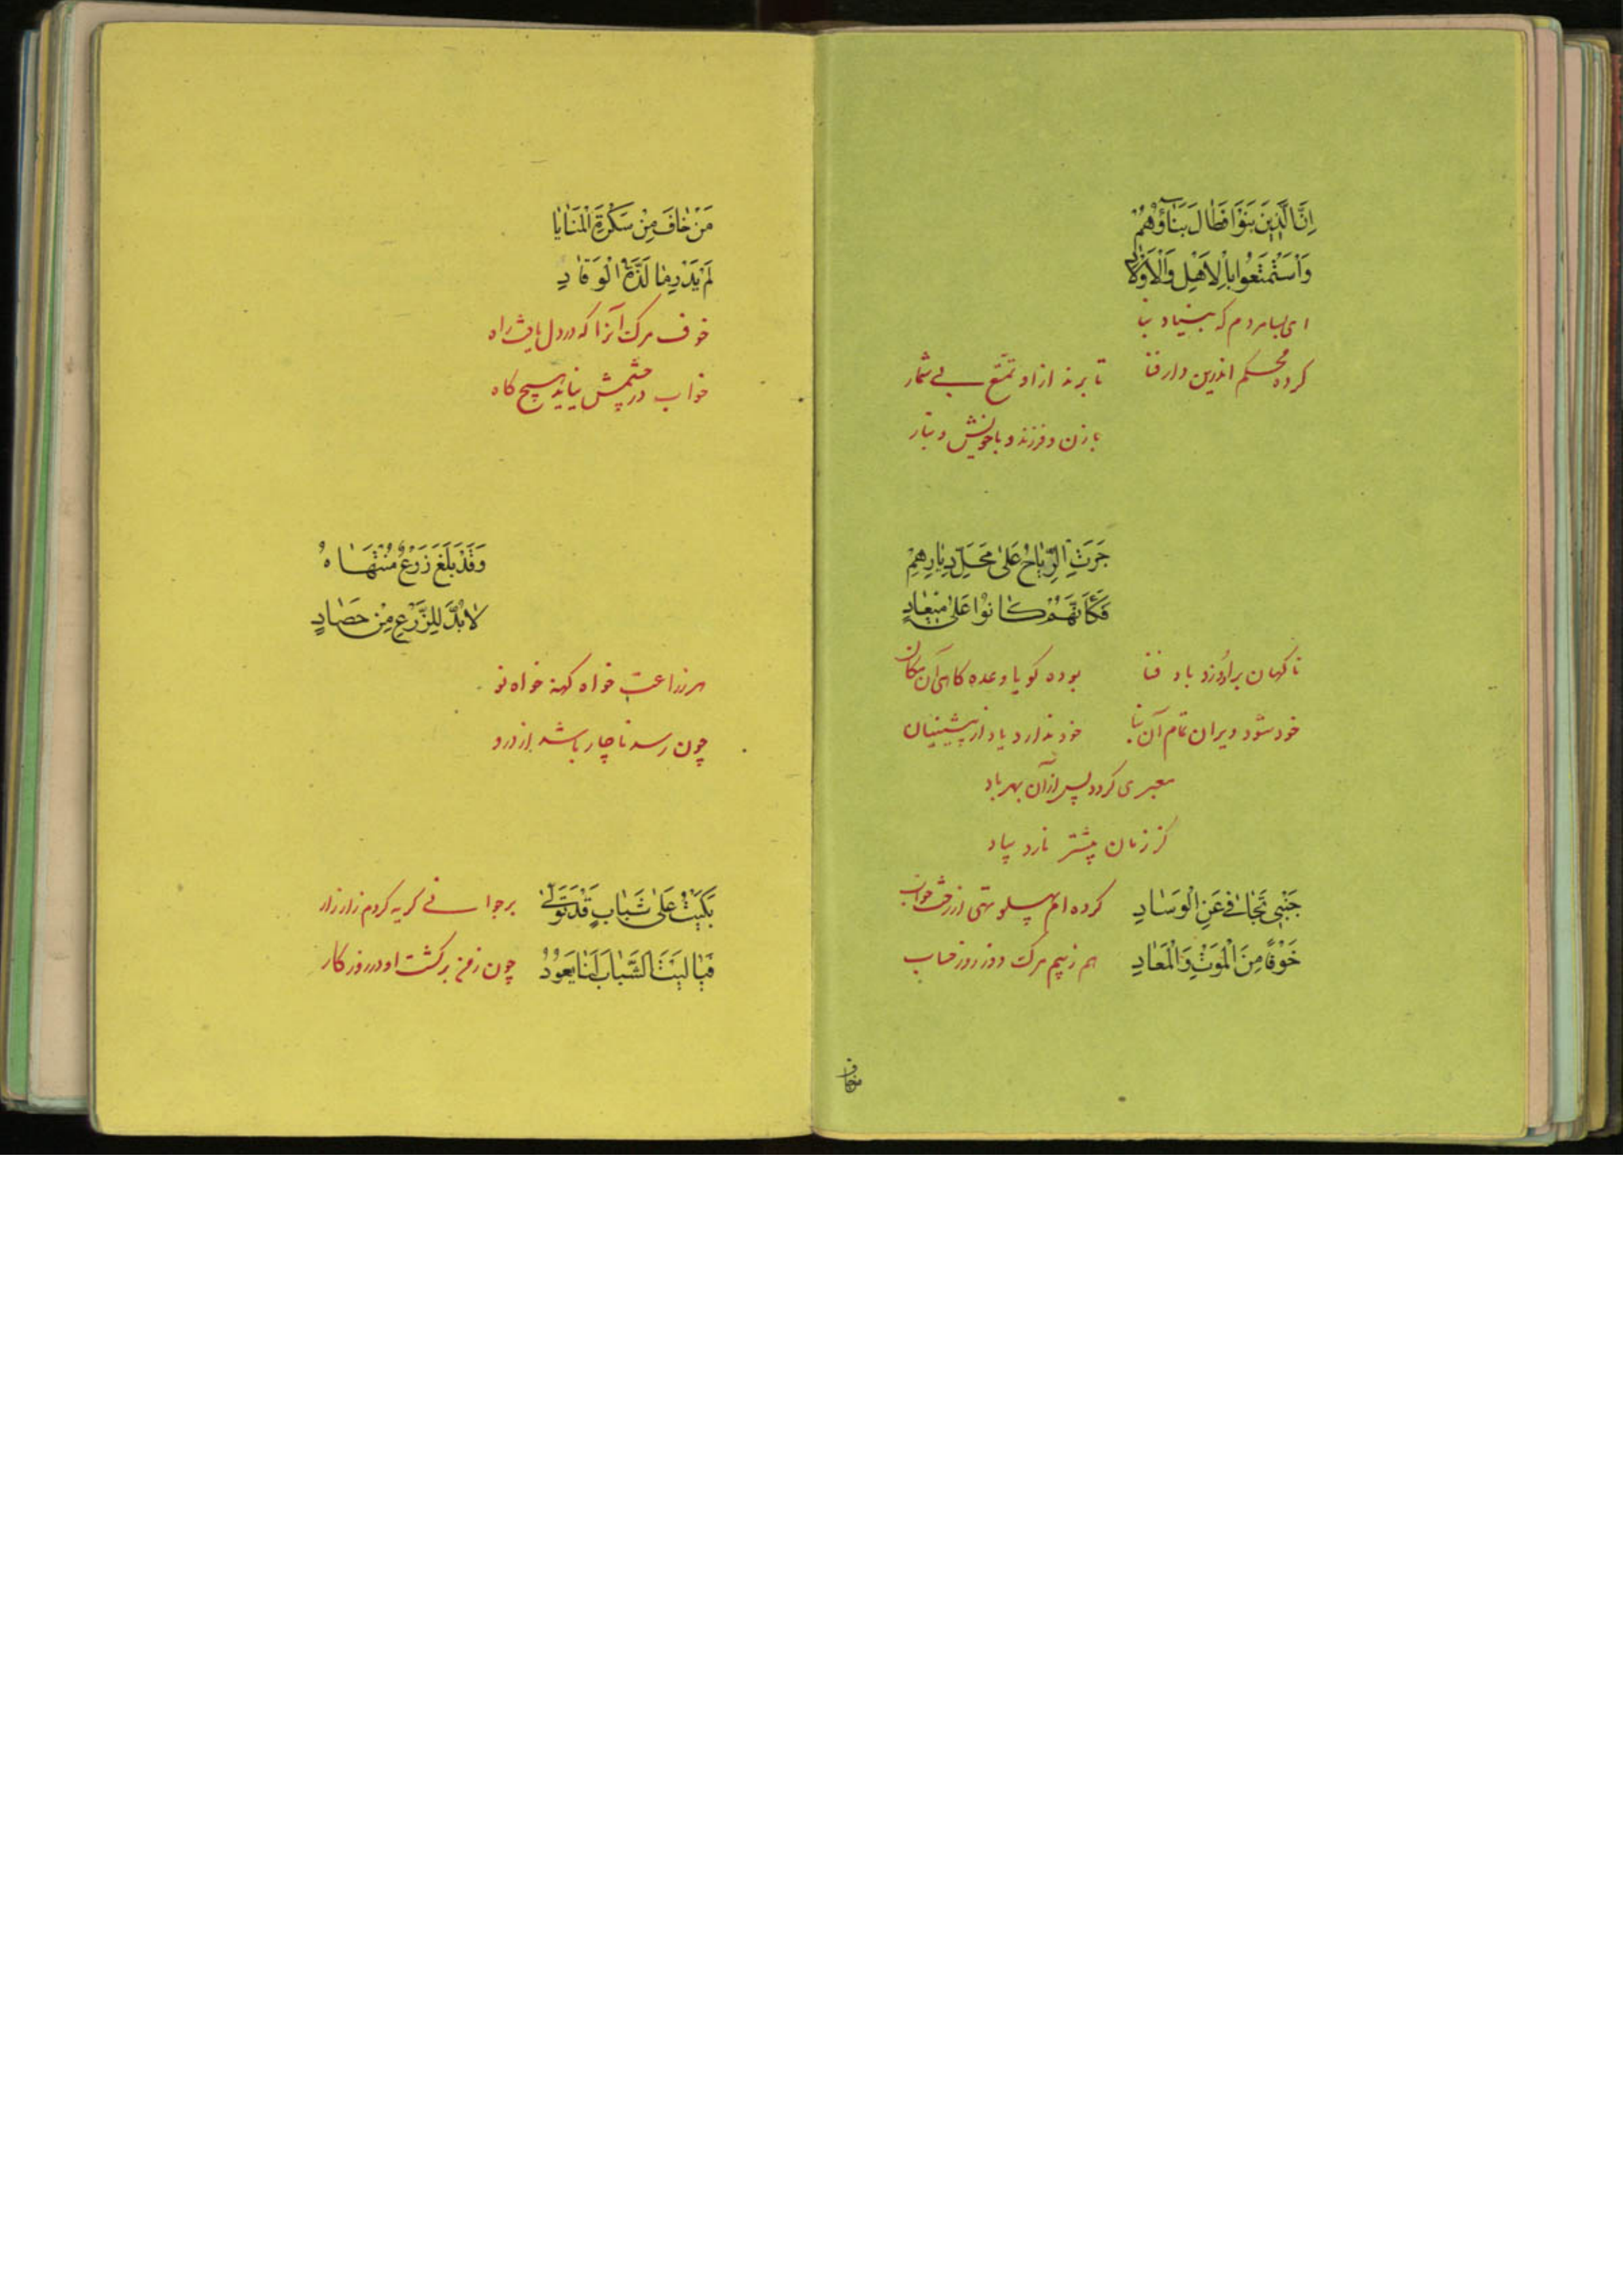 اِنَّ الَّذِينَ بَنَوْا فَطٰالَ بَنٰاؤُهُمْ
وَاسْتَمْتَعُوا بِالْاَهْلِ وَالْاَوْلٰادِ
ای بسا مردم که بنیاد بنا
کرده محکم اندرین دار فنا
تا برند از او تمتّع بی شمار
با زن و فرزند و با خویش و تبار
جَرَتِ الرِّيٰاحُ عَلىٰ مَحَلِّ دِيٰارِهِمِ
فَكَاَنَّهُمْ كٰانُوا عَلىٰ مِيعٰادٍ
ناکهان بر او وزد باد فنا
بوده کویا وعده کاهی آن مکان
خود شود ویران تمام آن بنا
خود ندارد یاد از پیشینیان
معبری کردد پس از آن بهر باد
کز زمان پیشتر نارد بیاد
جَنْبِي تَجٰافىٰ عَنِ الْوَسٰادِ
کرده ام پهلو تهی از رخت خواب
خَوْفًا مِنَ الْمَوْتِ وَالْمَعٰادِ
هم ز بیم مرک و وز روز حساب
من خاف
مَنْ خٰافَ مِنْ سَكْرَةِ الْمَنٰايٰا
لَمْ يَدْرِ مٰا لَذَّةُ الْوَقٰادِ
خوف مرک آنرا که در دل یافت راه
خواب در چشمش نیاید هیچ کاه
وَقَدْ بَلَغَ زَرْعٌ مُنْتَهٰاهُ
لٰابُدَّ لِلزَّرْعِ مِنْ حَصٰادٍ
هر زراعت خواه کهنه خواه نو
چون رسد ناچار باشد از درو
بَكَيْتُ عَلىٰ شَبٰابٍ قَدْ تَوَلّىٰ
برجوانی کریه کردم زار زار
فَيٰا لَيْتَ الشَّبٰابَ لَنٰا يَعُودُ
چون ز من برکشت او در روزکار